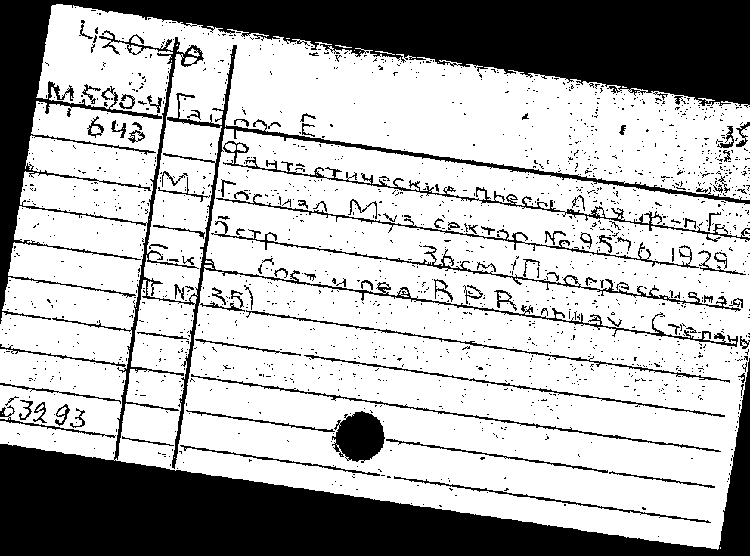 42040
М590-4 Гайрос Е. 35
643
Фантастические пьесы Для ф-п [в
М., Гос. изд. Муз. сектор, No 9576, 1929
5 стр 36 см (Прогрессивная
б-ка Сост. и ред. В Р Вильшау Степень
II No 35)
53293